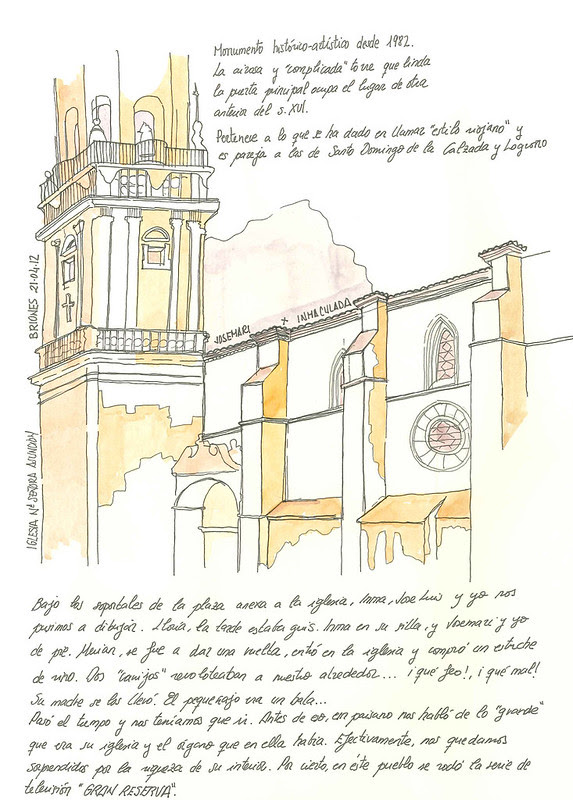 Monumento histórico-artístico desde 1982.
La airosa y "complicada" torre que linda
la puerta principal ocupa el lugar de otra
anterior del s. XVI.
Pertenece a lo que se ha dado en llamar "estilo riojano" y
es pareja a las de Santo Domingo de la Calzada y Logroño
BRIONES 21-04-12
IGLESIA Nª SEÑORA ASUNCIÓN
JOSEMARI + INMACULADA
Bajo los soportales de la plaza anexa a la iglesia, Inma, Jose Luis y yo nos
pusimos a dibujar. Llovía, la tarde estaba gris. Inma en su silla, y Josemari y yo
de pie. Miriam, se fue a dar una vuelta, entró en la iglesia y compró un estuche
de vino. Dos "canijos" revoloteaban a nuestro alrededor... ¡qué feo!, ¡qué mal!
Su madre se los llevó. El pequeñajo era un bala...
Pasó el tiempo y nos teníamos que ir. Antes de eso, un paisano nos habló de lo "grande"
que era su iglesia y el órgano que en ella había. Efectivamente, nos quedamos
sorprendidos por la riqueza de su interior. Por cierto, en este pueblo se rodó la serie de
televisión "GRAN RESERVA".